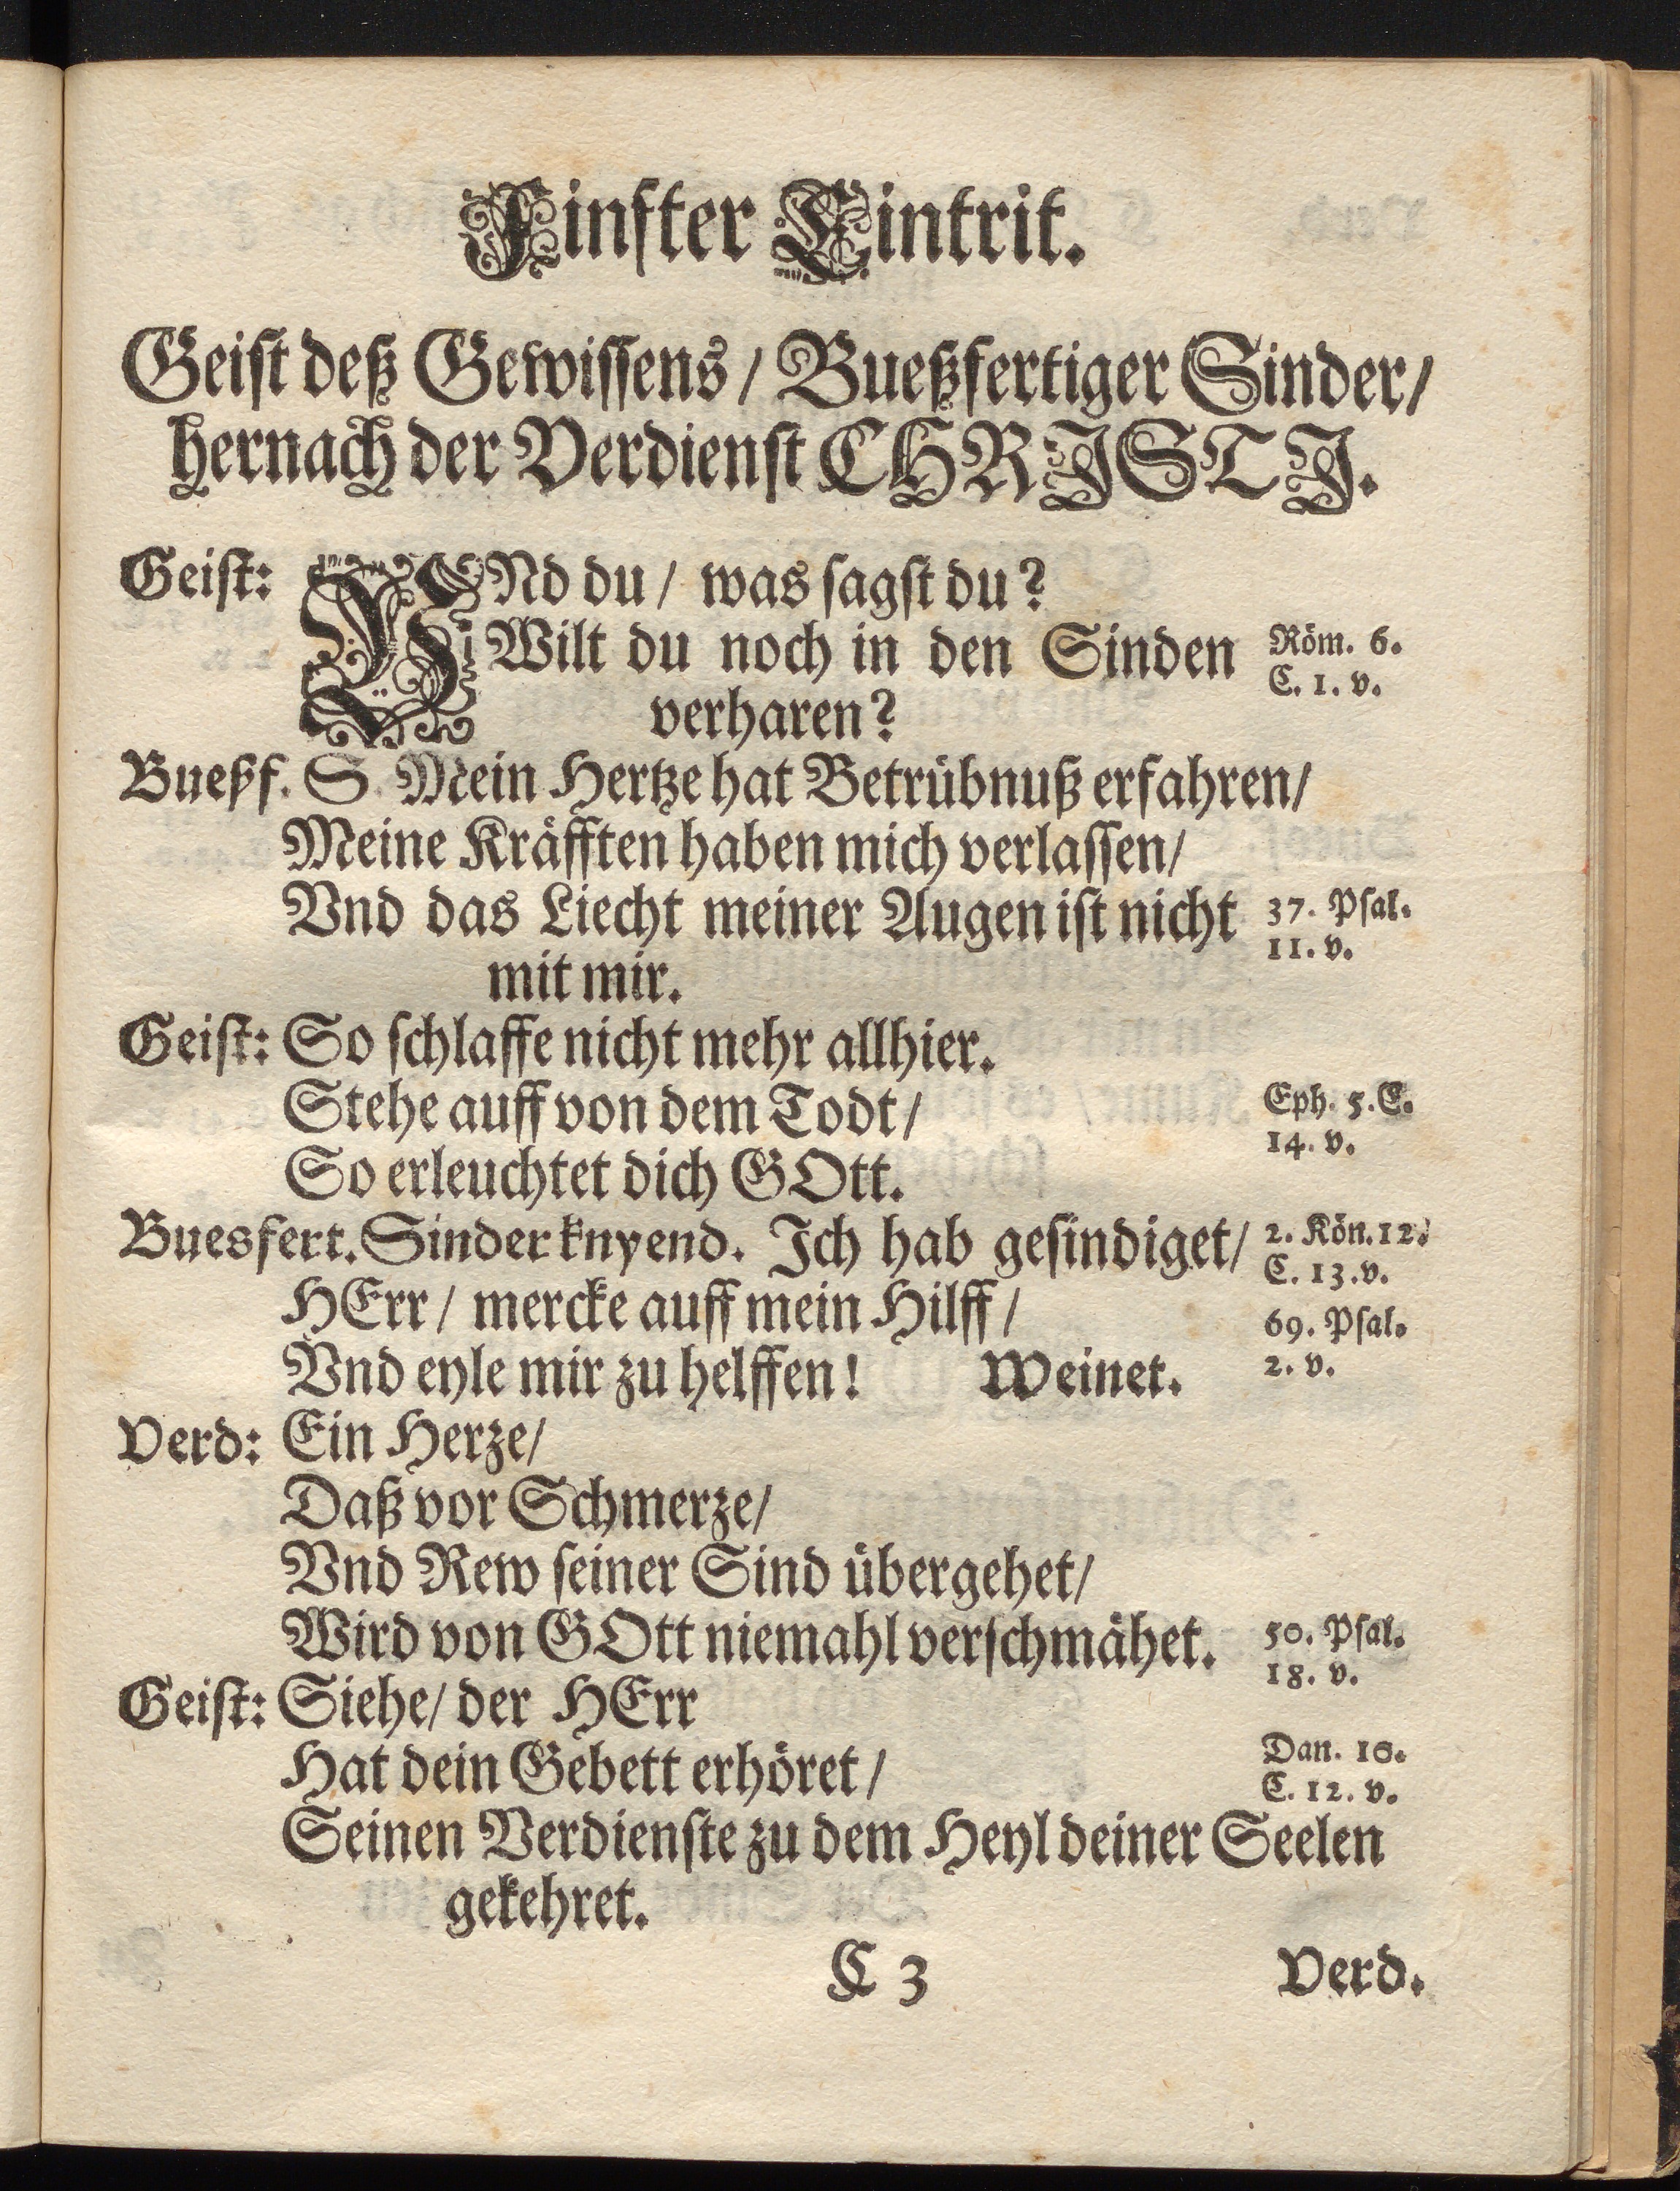 Finfter Eintrit.
Geist deß Gewissens / Bueßfertiger Sinder /
hernach der Verdienst CHRISTJ.
Geist: VNd du / was sagst du?
Wilt du noch in den Sinden Röm. 6.
C. 1. v.
verharen?
Bueßf. S. Mein Hertze hat Betrübnuß erfahren /
Meine Kräfften haben mich verlassen /
Vnd das Liecht meiner Augen ist nicht 37. Psal.
11. v.
mit mir.
Geist: So schlaffe nicht mehr allhier.
Stehe auff von dem Todt / Eph. 5. C.
14. v.
So erleuchtet dich GOtt.
Buesfert. Sinder knyend. Jch hab gesindiget / 2. Kön. 12.
C. 13. v.
HErr / mercke auff mein Hilff / 69. Psal.
Vnd eyle mir zu helffen! Weinet. 2. v.
Verd: Ein Herze /
Daß vor Schmerze /
Vnd Rew seiner Sind übergehet /
Wird von GOtt niemahl verschmähet. 50. Psal.
18. v.
Geist: Siehe / der HErr
Hat dein Gebett erhöret / Dan. 10.
C. 12. v.
Seinen Verdienste zu dem Heyl deiner Seelen
gekehret.
C 3 Verd.